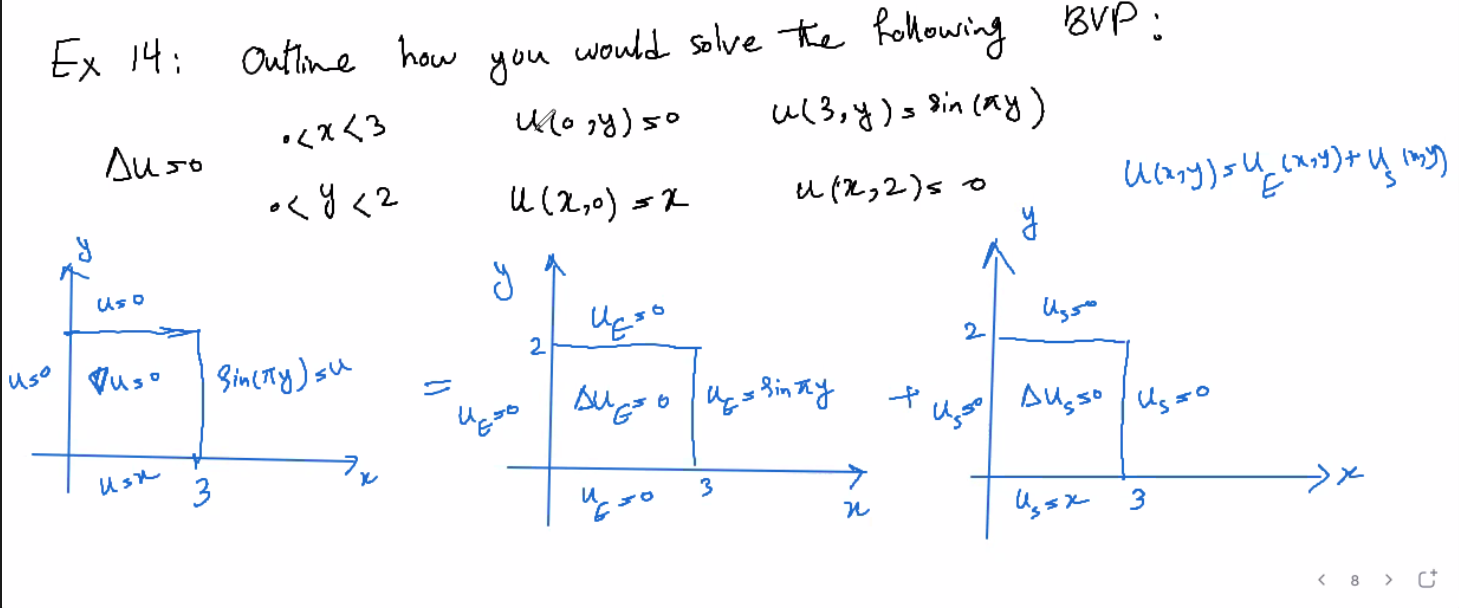 Ex 14: Outline how you would solve the following BVP:
Δu=0 0<x<3 u(0,y)=0 u(3,y)=sin(πy)
0<y<2 u(x,0)=x u(x,2)=0
u(x,y)=u_E(x,y)+u_S(x,y)
y
u=0
u=0 ∇u=0 sin(πy)=u
u=x 3 x
=
y
u_E=0
2
u_E=0 Δu_E=0 u_E=sin πy
u_E=0 3 x
+
y
u_S=0
2
u_S=0 Δu_S=0 u_S=0
u_S=x 3 x
< 8 >